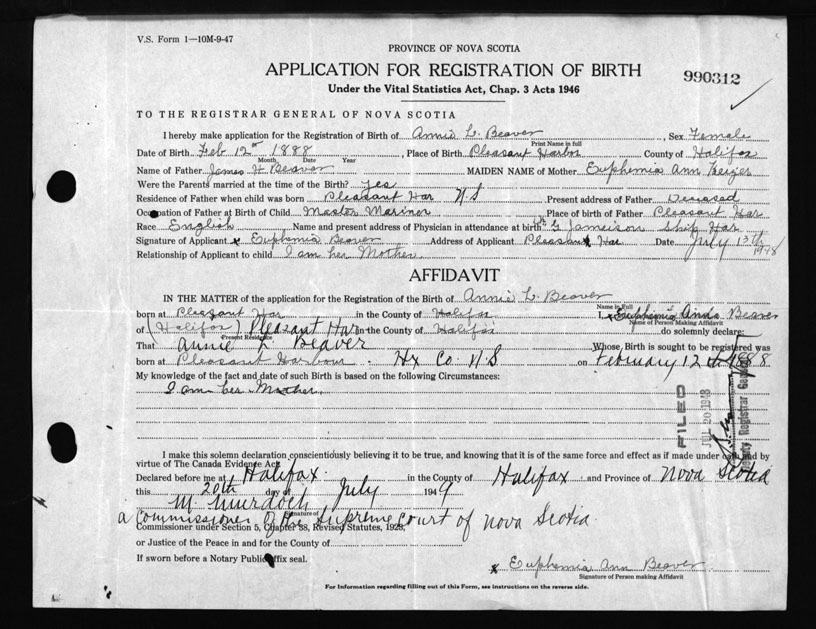 V.S. Form 1—10M-9-47
PROVINCE OF NOVA SCOTIA
APPLICATION FOR REGISTRATION OF BIRTH
990312
Under the Vital Statistics Act, Chap. 3 Acts 1946
TO THE REGISTRAR GENERAL OF NOVA SCOTIA
I hereby make application for the Registration of Birth of Annie L. Beaver, Sex Female
Print Name in full
Date of Birth Feb 12 1888, Place of Birth Pleasant Harbor County of Halifax
Month Date Year
Name of Father James H Beaver MAIDEN NAME of Mother Euphemia Ann
Were the Parents married at the time of the Birth? yes
Residence of Father when child was born Pleasant Har N.S Present address of Father Deceased
Occupation of Father at Birth of Child Master Mariner Place of birth of Father Pleasant Har
Race English Name and present address of Physician in attendance at birth Jameison Ship Har
Signature of Applicant x Euphemia Beaver Address of Applicant Pleasant Har Date July 13th 1948
Relationship of Applicant to child I am her Mother
AFFIDAVIT
IN THE MATTER of the application for the Registration of the Birth of Annie L. Beaver
Name in Full
born at Pleasant Har in the County of Halifax I, Euphemia Beaver
Name of Person Making Affidavit
of (Halifax) Pleasant Har in the County of Halifax do solemnly declare:
Present Residence
That Annie L Beaver Whose, Birth is sought to be registered was
born at Pleasant Harbour Hx Co. N.S on February 12 1888
My knowledge of the fact and date of such Birth is based on the following Circumstances:
I am her Mother
FILED
JUL 20 1948
Deputy Registrar General
I make this solemn declaration conscientiously believing it to be true, and knowing that it is of the same force and effect as if made under oath and by
virtue of The Canada Evidence Act.
Declared before me at Halifax in the County of Halifax and Province of Nova Scotia
this 20th day of July 1949
M. Murdoch
Signature of
a Commissioner of the Supreme Court of Nova Scotia
Commissioner under Section 5, Chapter 38, Revised Statutes, 1923,
or Justice of the Peace in and for the County of
If sworn before a Notary Public affix seal.
x Euphemia Ann Beaver
Signature of Person making Affidavit
For Information regarding filling out of this Form, see instructions on the reverse side.